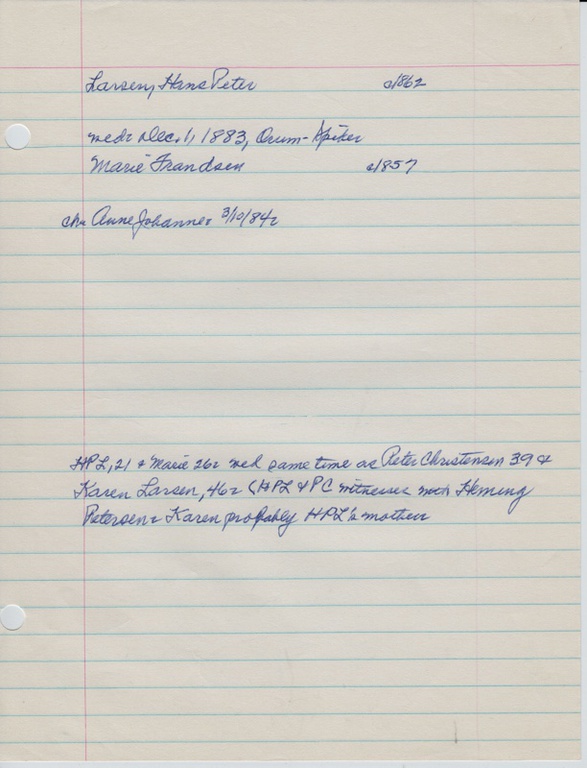 Larsen, Hans Peter c1862
wed: Dec. 1, 1883, Orum-
Marie Frandsen c1857
ch: Anne Johanne: 3/10/84:
HPL, 21 & Marie 26: wed same time as Peter Christensen 39 &
Karen Larsen, 46: (HPL & PC witnesses with Fleming
Petersen: Karen probably HPL's mother